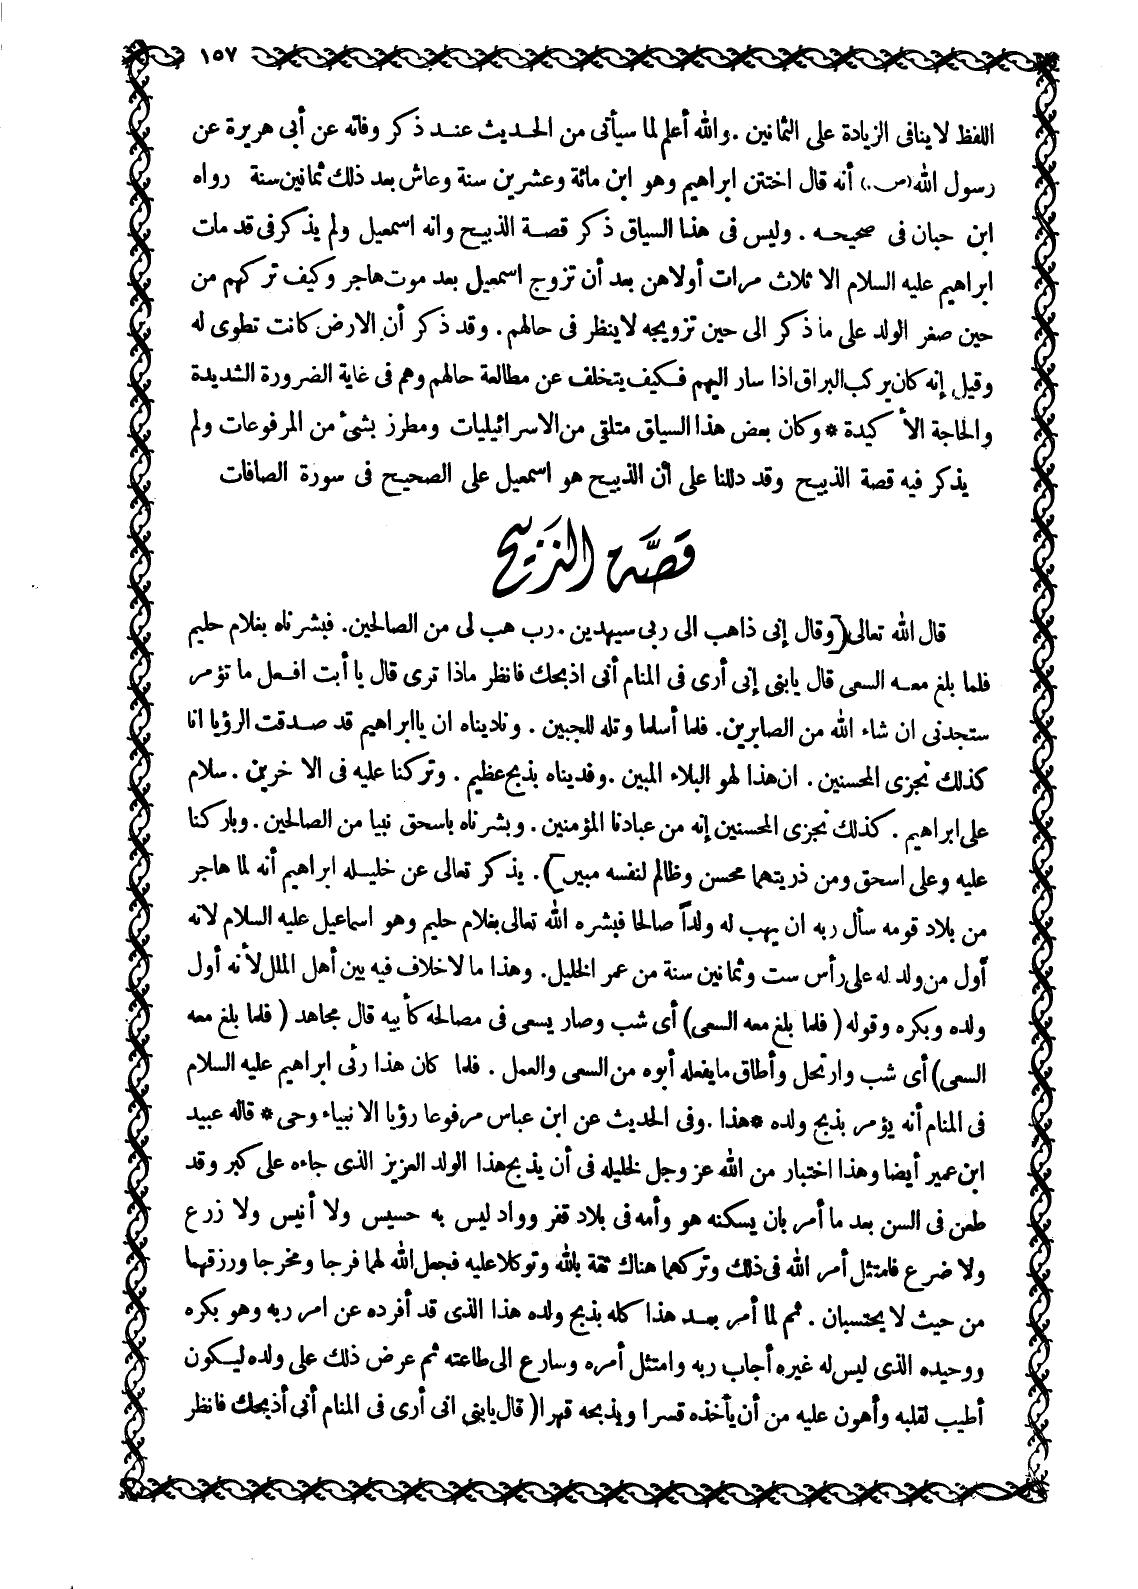 ١٥٧
اللفظ لا ينافى الزيادة على الثمانين . والله أعلم لما سيأتى من الحديث عند ذكر وفاته عن أبى هريرة عن
رسول الله (ص.) أنه قال اختتن ابراهيم وهو ابن مائة وعشرين سنة وعاش بعد ذلك ثمانين سنة رواه
ابن حبان فى صحيحه . وليس فى هذا السياق ذكر قصة الذبيح وانه اسمعيل ولم يذكر فى قدمات
ابراهيم عليه السلام الا ثلاث مرات أولاهن بعد أن تزوج اسمعيل بعد موت هاجر وكيف تركهم من
حين صغر الولد على ما ذكر الى حين تزويجه لا ينظر فى حالهم . وقد ذكر أن الارض كانت تطوى له
وقيل إنه كان يركب البراق اذا سار اليهم فكيف يتخلف عن مطالعة حالهم وهم فى غاية الضرورة الشديدة
والحاجة الأكيدة * وكان بعض هذا السياق متلقى من الاسرائيليات ومطرز بشئ من المرفوعات ولم
يذكر فيه قصة الذبيح وقد دللنا على أن الذبيح هو اسمعيل على الصحيح فى سورة الصافات
قصة الذبيح
قال الله تعالى (وقال إنى ذاهب الى ربى سيهدين . رب هب لى من الصالحين . فبشرناه بغلام حليم
فلما بلغ معه السعى قال يابنى إنى أرى فى المنام أنى اذبحك فانظر ماذا ترى قال يا أبت افعل ما تؤمر
ستجدنى ان شاء الله من الصابرين . فلما أسلما وتله للجبين . وناديناه ان ياابراهيم قد صدقت الرؤيا انا
كذلك نجزى المحسنين . ان هذا لهو البلاء المبين . وفديناه بذبح عظيم . وتركنا عليه فى الا خرين . سلام
على ابراهيم . كذلك نجزى المحسنين إنه من عبادنا المؤمنين . وبشرناه باسحق نبيا من الصالحين . وباركنا
عليه وعلى اسحق ومن ذريتهما محسن وظالم لنفسه مبين) . يذكر تعالى عن خليله ابراهيم أنه لما هاجر
من بلاد قومه سأل ربه ان يهب له ولداً صالحا فبشره الله تعالى بغلام حليم وهو اسماعيل عليه السلام لانه
أول من ولد له على رأس ست وثمانين سنة من عمر الخليل . وهذا ما لا خلاف فيه بين أهل الملل لأنه أول
ولده وبكره وقوله ( فلما بلغ معه السعى ) أى شب وصار يسعى فى مصالحه كأبيه قال مجاهد ( فلما بلغ معه
السعى ) أى شب وارتحل وأطاق ما يفعله أبوه من السعى والعمل . فلما كان هذا رئى ابراهيم عليه السلام
فى المنام أنه يؤمر بذبح ولده * هذا . وفى الحديث عن ابن عباس مرفوعا رؤيا الانبياء وحى * قاله عبيد
ابن عمير أيضا وهذا اختبار من الله عز وجل لخليله فى أن يذبح هذا الولد العزيز الذى جاءه على كبر وقد
طعن فى السن بعد ما أمر بان يسكنه هو وأمه فى بلاد قفر وواد ليس به حسيس ولا أنيس ولا زرع
ولا ضرع فامتثل أمر الله فى ذلك وتركهما هناك ثقة بالله وتوكلا عليه فجعل الله لهما فرجا ومخرجا ورزقهما
من حيث لا يحتسبان . ثم لما أمر بعد هذا كله بذبح ولده هذا الذى قد أفرده عن امر ربه وهو بكره
ووحيده الذى ليس له غيره أجاب ربه وامتثل أمره وسارع الى طاعته ثم عرض ذلك على ولده ليكون
أطيب لقلبه وأهون عليه من أن يأخذه قسرا ويذبحه قهرا ( قال يابنى انى أرى فى المنام أنى أذبحك فانظر